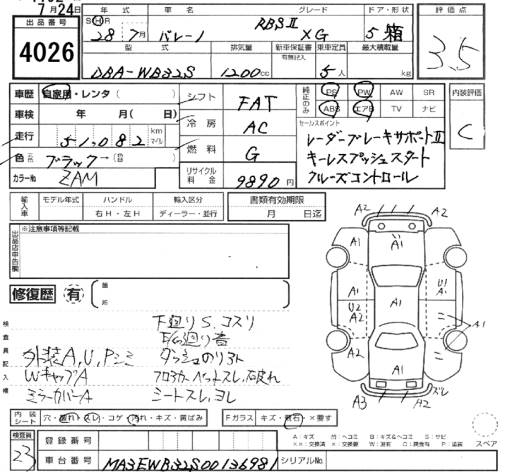 7月24日
出品番号 4026
年式 28年7月
車名 バレーノ
グレード RBSⅡ XG
ドア・形状 5 箱
評価点 3.5
型式 DBA-WB32S
排気量 1200cc
新車保証書 有無記入
乗車定員 5人
最大積載量 kg
車歴 自家用・レンタ（
車検 年 月（ 日）
走行 51,082 km マイル
色 ブラック→（
カラーNo ZAM
シフト FAT
冷房 AC
燃料 G
リサイクル料金 9890円
純正のみ PS PW AW SR
ABS エアB TV ナビ
内装評価 C
セールスポイント
レーダーブレーキサポートⅡ
キーレスプッシュスタート
クルーズコントロール
輸入車 モデル年式 ハンドル 右H・左H 輸入区分 ディーラー・並行
書類有効期限 月 日迄
出品店申告欄 ※注意事項等記載
修復歴 有
検査員記入欄
下廻りS、コスリ
外装A,U,Pシミ
ダッシュのリヨト
WキャプA
フロアカーペットスレ、破れ
ミラーカバーA
シートスレ、ヨレ
A2 A1 A2
A1
A1 A1 U1 A1
U2 A2 A2 A1
A1
A3 A2 スレ
内装シート 穴・破れ・スレ・コゲ・汚れ・キズ・黄ばみ
Fガラス キズ・飛石・×要す
A：キズ U：ヘコミ B：キズ&ヘコミ S：サビ
スペア
検査員 23
登録番号
車台番号 MA3EWB32S00136981
シリアルNo.